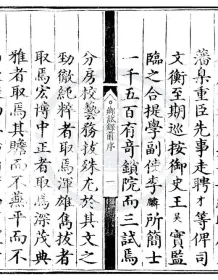 藩臬重臣先事走聘才等俾司
文衡至期巡按御史王實監
臨之合提學副使李麟所簡士
一千五百有奇鎖院而三試焉
序 一
分房校藝務拔殊尤於其文之
勁徹純粹者取焉渾雄雋拔者
取焉宏博中正者取焉深茂典
雅者取焉其贍而不蕪平而不